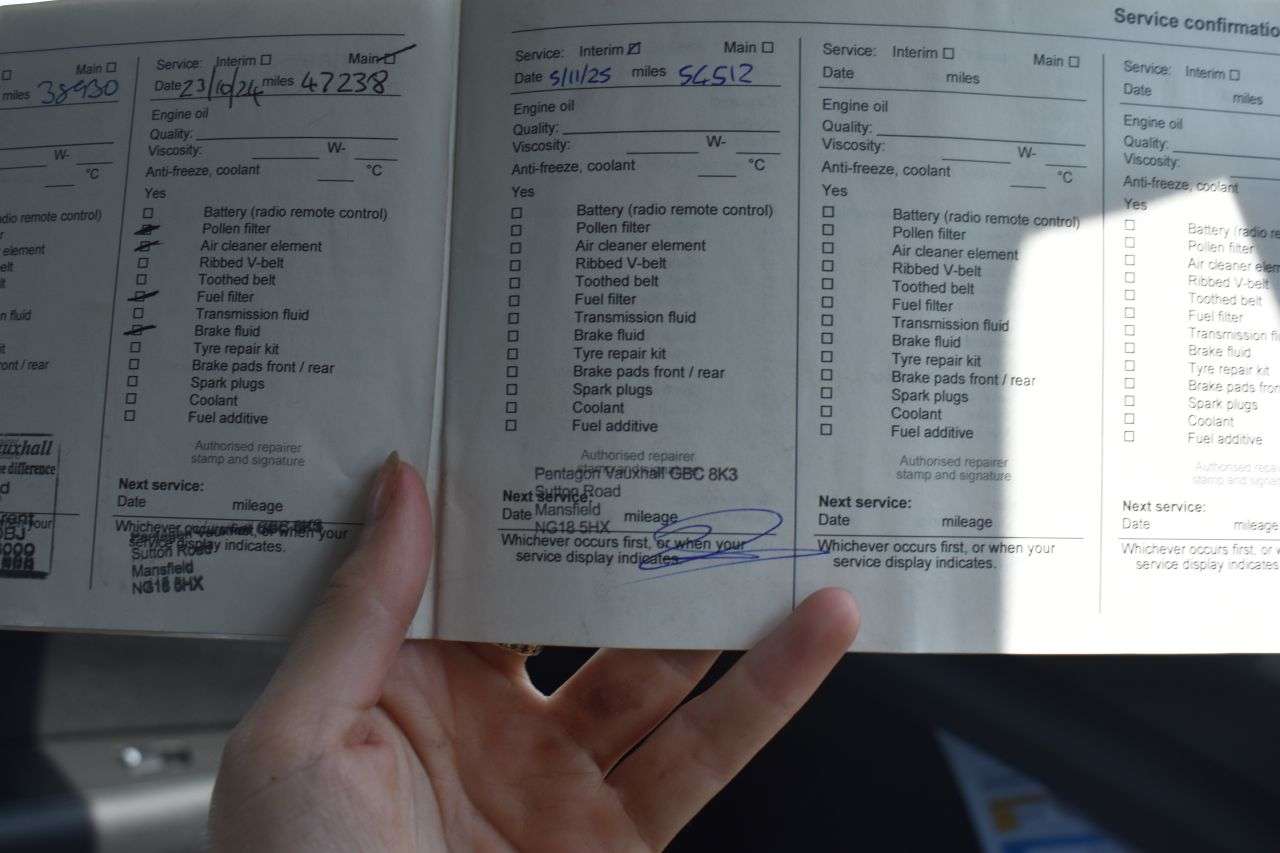 Service confirmatio
Main
miles 38930
W-
°C
dio remote control)
r
element
elt
t
n fluid
it
ront / rear
auxhall
e difference
d
your
Service: Interim Main
Date 23/10/24 miles 47238
Engine oil
Quality:
Viscosity: W-
Anti-freeze, coolant °C
Yes
Battery (radio remote control)
Pollen filter
Air cleaner element
Ribbed V-belt
Toothed belt
Fuel filter
Transmission fluid
Brake fluid
Tyre repair kit
Brake pads front / rear
Spark plugs
Coolant
Fuel additive
Authorised repairer
stamp and signature
Next service:
Date mileage
Whichever occurs first, or when your
service display indicates.
Sutton Road
Mansfield
NG18 5HX
Service: Interim Main
Date 5/11/25 miles 54512
Engine oil
Quality:
Viscosity: W-
Anti-freeze, coolant °C
Yes
Battery (radio remote control)
Pollen filter
Air cleaner element
Ribbed V-belt
Toothed belt
Fuel filter
Transmission fluid
Brake fluid
Tyre repair kit
Brake pads front / rear
Spark plugs
Coolant
Fuel additive
Authorised repairer
stamp and signature
Pentagon Vauxhall GBC 8K3
Sutton Road
Mansfield
NG18 5HX
Next service:
Date mileage
Whichever occurs first, or when your
service display indicates.
Service: Interim Main
Date miles
Engine oil
Quality:
Viscosity: W-
Anti-freeze, coolant °C
Yes
Battery (radio remote control)
Pollen filter
Air cleaner element
Ribbed V-belt
Toothed belt
Fuel filter
Transmission fluid
Brake fluid
Tyre repair kit
Brake pads front / rear
Spark plugs
Coolant
Fuel additive
Authorised repairer
stamp and signature
Next service:
Date mileage
Whichever occurs first, or when your
service display indicates.
Service: Interim
Date miles
Engine oil
Quality:
Viscosity:
Anti-freeze, coolant
Yes
Battery (radio re
Pollen filter
Air cleaner elem
Ribbed V-belt
Toothed belt
Fuel filter
Transmission flu
Brake fluid
Tyre repair kit
Brake pads fron
Spark plugs
Coolant
Fuel additive
Authorised repa
stamp and signa
Next service:
Date mileage
Whichever occurs first, or w
service display indicates